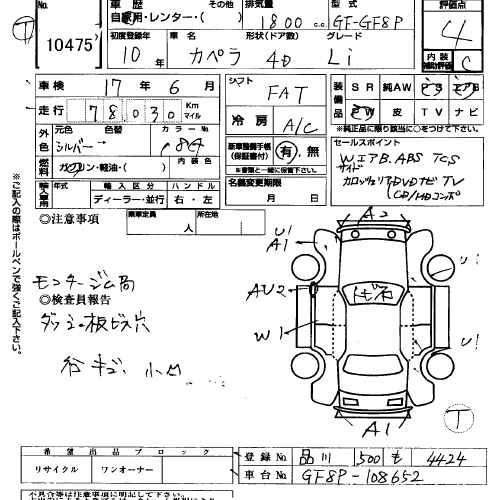 車歴 その他 排気量 型式 評価点
10475 自家用・レンター・( ) 1800cc GF-GF8P 4
初度登録年 車名 形状(ドア数) グレード 内装
10年 カペラ 4D Li 補助評価 C
車検 17年 6月 シフト FAT 装備品 SR 純AW PS エアB
走行 78030 Km マイル 冷房 A/C PW 皮 TV ナビ
※純正品に限り該当に○をつけて下さい。
外色 元色 色替 カラーNo.
シルバー
新車整備手帳(保証書付) 有・無
※書類と一緒に保管して下さい。
セールスポイント
WエアB. ABS TCS
燃料 ガソリン・軽油・( )
名義変更期限 月 日
DVDナビ TV
輸入車用 年式 輸入区分 ハンドル
ディーラー・並行 右・左
◎注意事項 乗車定員 人 所在地
※ご記入の際はボールペンで強くご記入下さい。
A2
U1
A1
U1
AU2
W1
U1
A1
T
◎検査員報告
小凹
希望出品ブロック
リサイクル ワンオーナー
登録No. 品川 500 も 4424
車台No. GF8P-108652